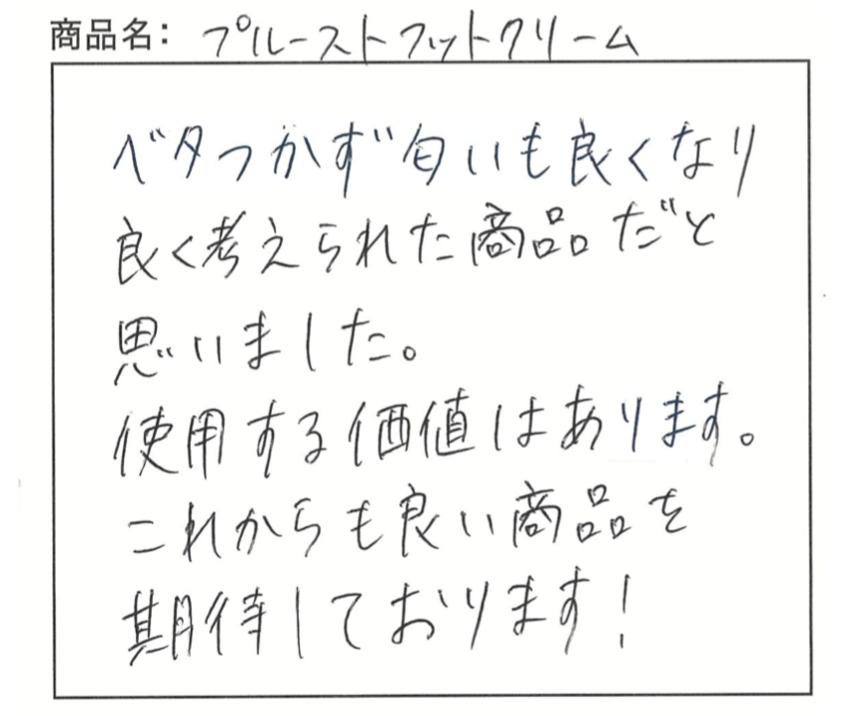 商品名： プルーストフットクリーム
ベタつかず匂いも良くなり
良く考えられた商品だと
思いました。
使用する価値はあります。
これからも良い商品を
期待しております！